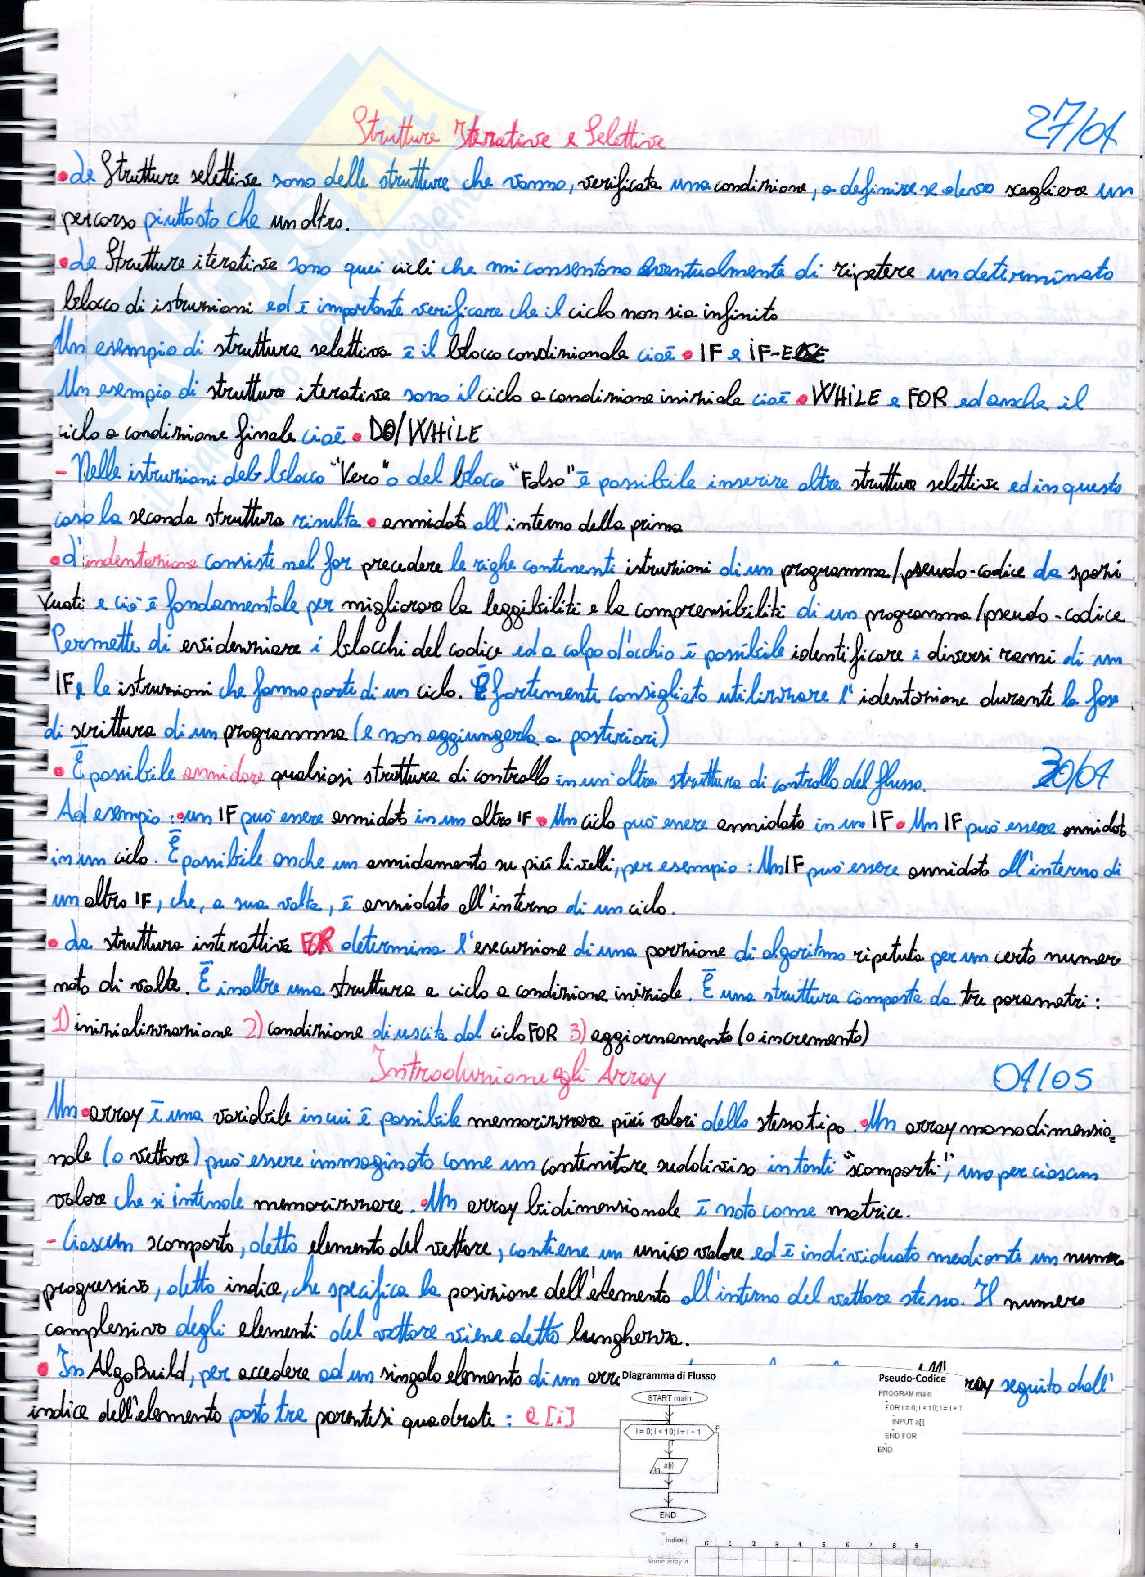 27/04
Strutture Iterative e Selettive
• Le Strutture selettive sono delle strutture che vanno, verificata una condizione, a definire se devo scegliere un
percorso piuttosto che un altro.
• Le Strutture iterative sono quei cicli che mi consentono eventualmente di ripetere un determinato
blocco di istruzioni ed è importante verificare che il ciclo non sia infinito
Un esempio di struttura selettiva è il blocco condizionale cioè • IF e IF-ELSE
Un esempio di struttura iterativa sono il ciclo a condizione iniziale cioè • WHILE e FOR ed anche il
ciclo a condizione finale cioè • DO/WHILE
- Nelle istruzioni del blocco "Vero" o del blocco "Falso" è possibile inserire altre strutture selettive ed in questo
caso la seconda struttura risulta • annidata all'interno della prima
• L'indentazione consiste nel far precedere le righe contenenti istruzioni di un programma/pseudo-codice da spazi
vuoti e ciò è fondamentale per migliorare la leggibilità e la comprensibilità di un programma/pseudo-codice
Permette di evidenziare i blocchi del codice ed a colpo d'occhio è possibile identificare i diversi rami di un
IF e le istruzioni che fanno parte di un ciclo. È fortemente consigliato utilizzare l'identazione durante la fase
di scrittura di un programma (e non aggiungerla a posteriori)
• È possibile annidare qualsiasi struttura di controllo in un'altra struttura di controllo del flusso. 30/04
Ad esempio: • un IF può essere annidato in un altro IF • Un ciclo può essere annidato in un IF • Un IF può essere annidato
in un ciclo. È possibile anche un annidamento su più livelli, per esempio: Un IF può essere annidato all'interno di
un altro IF, che, a sua volta, è annidato all'interno di un ciclo.
• La struttura interattiva FOR determina l'esecuzione di una porzione di algoritmo ripetuta per un certo numero
noto di volte. È inoltre una struttura a ciclo a condizione iniziale. È una struttura composta da tre parametri:
1) inizializzazione 2) condizione di uscita dal ciclo FOR 3) aggiornamento (o incremento)
Introduzione agli Array 04/05
Un • array è una variabile in cui è possibile memorizzare più valori dello stesso tipo. • Un array monodimensio-
nale (o vettore) può essere immaginato come un contenitore suddiviso in tanti "scomparti", uno per ciascun
valore che si intende memorizzare. • Un array bidimensionale è noto come matrice.
- Ciascun scomparto, detto elemento del vettore, contiene un unico valore ed è individuato mediante un numero
progressivo, detto indice, che specifica la posizione dell'elemento all'interno del vettore stesso. Il numero
complessivo degli elementi del vettore viene detto lunghezza.
• In AlgoBuild, per accedere ad un singolo elemento di un arra ray seguito dall'
indice dell'elemento posto tra parentesi quadrate: a[i]
Diagramma di Flusso
START main
i = 0; i < 10; i = i + 1
F
a[i]
END
Pseudo-Codice
PROGRAM main
FOR i = 0; i < 10; i = i + 1
INPUT a[i]
END FOR
END
Indice i 0 1 2 3 4 5 6 7 8 9